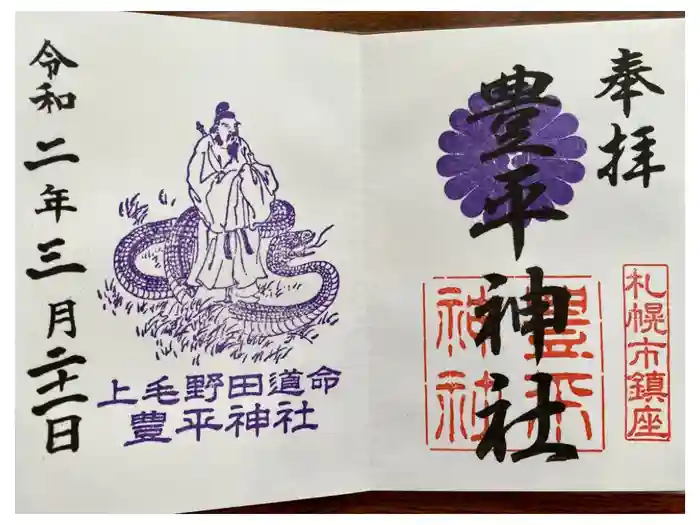 奉拝
豊平神社
豊平神社
札幌市鎮座
令和二年三月二十一日
上毛野田道命
豊平神社